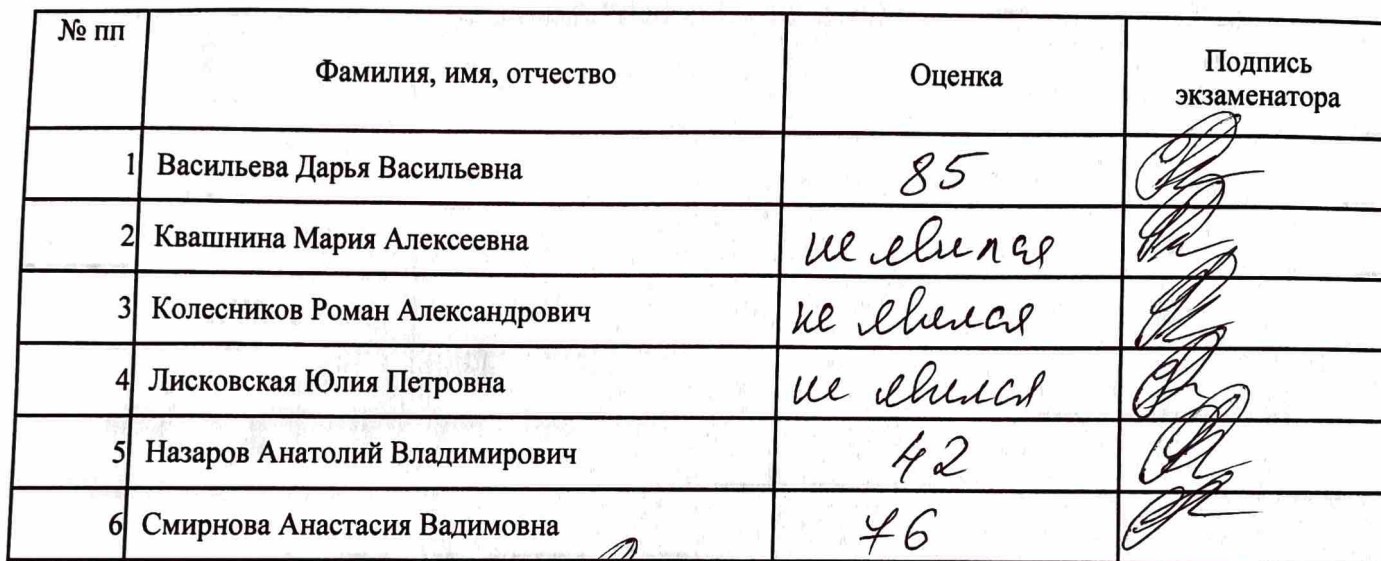 № пп Фамилия, имя, отчество Оценка Подпись
экзаменатора
1 Васильева Дарья Васильевна 85
2 Квашнина Мария Алексеевна не явился
3 Колесников Роман Александрович не явился
4 Лисковская Юлия Петровна не явился
5 Назаров Анатолий Владимирович 42
6 Смирнова Анастасия Вадимовна 76